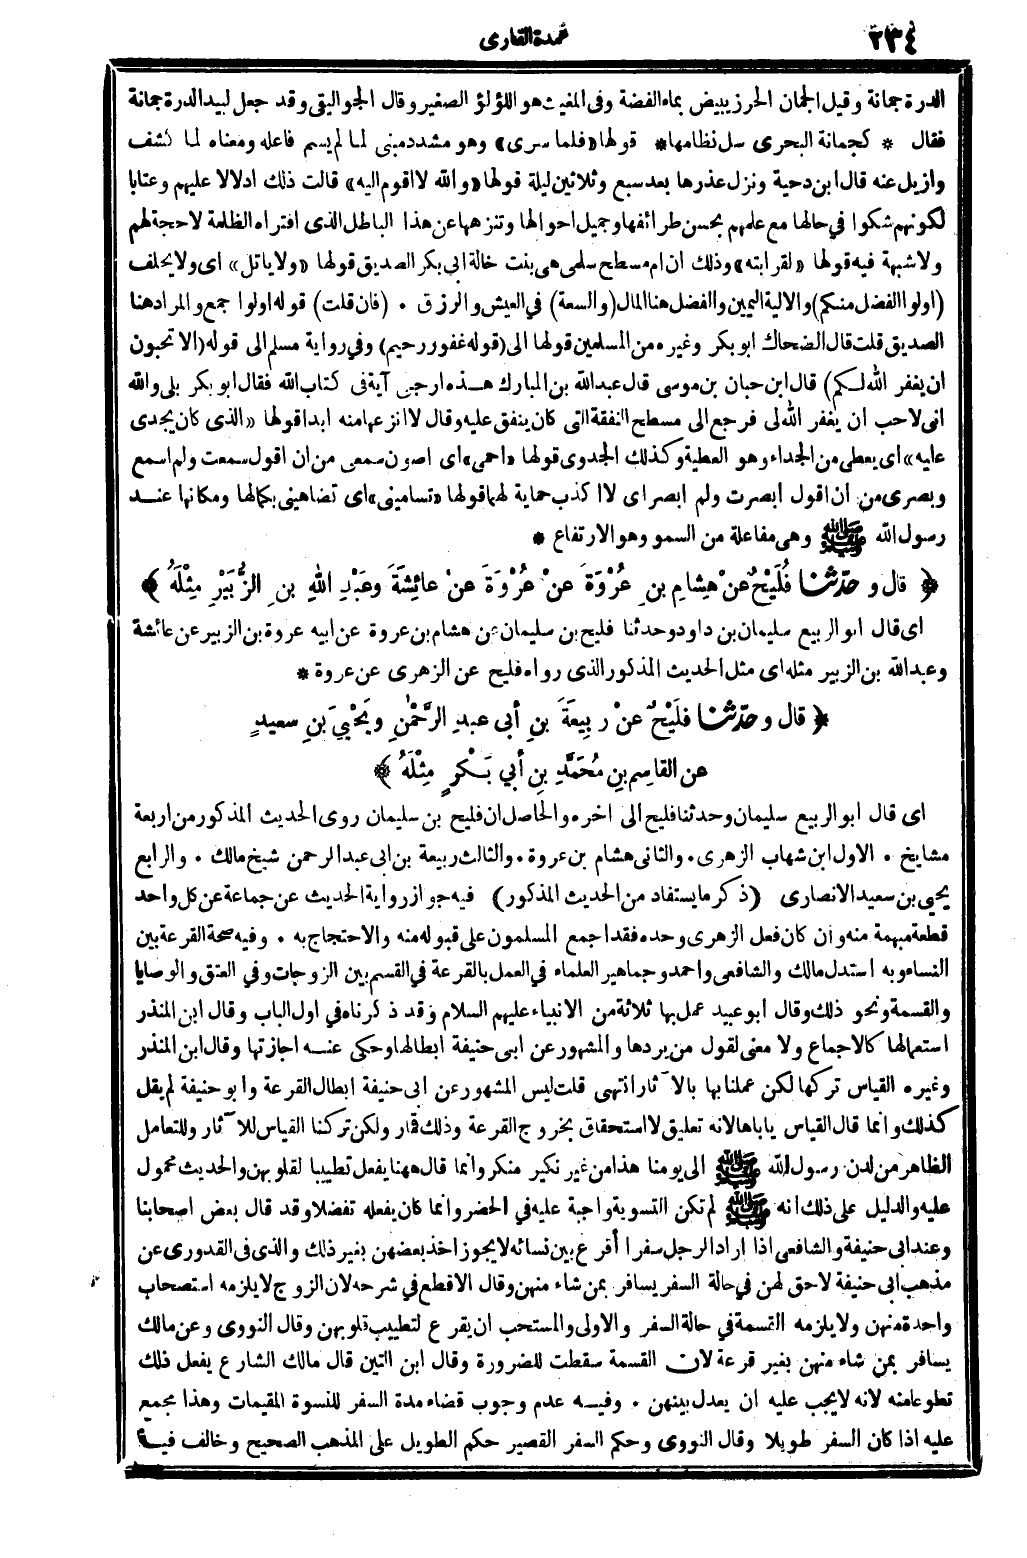 ٢٣٤
عمدة القاري
الدرة جمانة وقيل الجمان الخرز يبيض بماء الفضة وفى المغيث هو اللؤلؤ الصغير وقال الجواليقى وقد جعل لبيد الدرة جمانة
فقال * كجمانة البحرى سل نظامها * قولها «فلما سرى» وهو مشدد مبنى لما لم يسم فاعله ومعناه لما كشف
وازيل عنه قال ابن دحية ونزل عذرها بعد سبع وثلاثين ليلة قولها «والله لا اقوم اليه» قالت ذلك ادلالا عليهم وعتابا
لكونهم شكوا في حالها مع علمهم بحسن طرائفها وجميل احوالها وتنزهها عن هذا الباطل الذى افتراه الظلمة لا حجة لهم
ولا شبهة فيه قولها «لقرابته» وذلك ان ام مسطح سلمى هى بنت خالة ابي بكر الصديق قولها «ولا ياتل» اى ولا يحلف
(اولوا الفضل منكم) والالية اليمين والفضل هنا المال (والسعة) في العيش والرزق . (فان قلت) قوله اولوا جمع والمراد هنا
الصديق قلت قال الضحاك ابو بكر وغيره من المسلمين قولها الى (قوله غفور رحيم) وفي رواية مسلم الى قوله (الا تحبون
ان يغفر الله لكم) قال ابن حبان بن موسى قال عبدالله بن المبارك هذه ارجى آية فى كتاب الله فقال ابو بكر بلى والله
انى لاحب ان يغفر الله لى فرجع الى مسطح النفقة التى كان ينفق عليه وقال لا انزعها منه ابدا قولها «الذى كان يجدى
عليه» اى يعطى من الجداء وهو العطية وكذلك الجدوى قولها «احمى» اى اصون سمعى من ان اقول سمعت ولم اسمع
وبصرى من ان اقول أبصرت ولم ابصر اى لا ا كذب حماية لهما قولها «تسامينى» اى تضاهينى بكمالها ومكانها عند
رسول الله ﷺ وهى مفاعلة من السمو وهو الارتفاع *
﴿ قال و حدّثنا فُلَيْحٌ عنْ هِشامِ بنِ عُرْوَةَ عنْ عُرْوَةَ عنْ عائِشَةَ وعَبْدِ اللهِ بنِ الزُّبَيْرِ مِثْلَهُ ﴾
اى قال ابو الربيع سليمان بن داود وحدثنا فليح بن سليمان عن هشام بن عروة عن ابيه عروة بن الزبير عن عائشة
وعبدالله بن الزبير مثله اى مثل الحديث المذكور الذى رواه فليح عن الزهرى عن عروة *
﴿ قال و حدّثنا فُلَيْحٌ عنْ ربِيعَةَ بنِ أبى عبدِ الرَّحْمٰنِ ويَحْيَى بنِ سعيدٍ
عن القاسِمِ بنِ مُحَمَّدِ بنِ أبي بَكْرٍ مِثْلَهُ ﴾
اى قال ابو الربيع سليمان وحدثنا فليح الى اخره والحاصل ان فليح بن سليمان روى الحديث المذكور من اربعة
مشايخ . الاول ابن شهاب الزهرى . والثانى هشام بن عروة . والثالث ربيعة بن ابى عبدالرحمن شيخ مالك . والرابع
يحيى بن سعيد الانصارى (ذكر ما يستفاد من الحديث المذكور) فيه جواز رواية الحديث عن جماعة عن كل واحد
قطعة مبهمة منه وان كان فعل الزهرى وحده فقد اجمع المسلمون على قبوله منه والاحتجاج به . وفيه صحة القرعة بين
النساء وبه استدل مالك والشافعى واحمد وجماهير العلماء في العمل بالقرعة في القسم بين الزوجات وفي العتق والوصايا
والقسمة ونحو ذلك وقال أبو عبيد عمل بها ثلاثة من الانبياء عليهم السلام وقد ذكرناه في اول الباب وقال ابن المنذر
استعمالها كالاجماع ولا معنى لقول من يردها والمشهور عن ابى حنيفة ابطالها وحكى عنه اجازتها وقال ابن المنذر
وغيره القياس تركها لكن عملنا بها بالآثار انتهى قلت ليس المشهور عن ابى حنيفة ابطال القرعة وابو حنيفة لم يقل
كذلك وانما قال القياس ياباها لانه تعليق لاستحقاق بخروج القرعة وذلك قمار ولكن تركنا القياس للآثار وللتعامل
الظاهر من لدن رسول الله ﷺ الى يومنا هذا من غير نكير منكر وانما قال ههنا يفعل تطييبا لقلوبهن والحديث محمول
عليه والدليل على ذلك انه ﷺ لم تكن التسوية واجبة عليه في الحضر وانما كان يفعله تفضلا وقد قال بعض اصحابنا
وعند ابى حنيفة والشافعى اذا اراد الرجل سفرا أقرع بين نسائه لا يجوز اخذ بعضهن بغير ذلك والذى فى القدورى عن
مذهب ابى حنيفة لا حق لهن في حالة السفر يسافر بمن شاء منهن وقال الاقطع في شرحه لان الزوج لا يلزمه استصحاب
واحدة منهن ولا يلزمه القسمة في حالة السفر والاولى والمستحب ان يقرع لتطييب قلوبهن وقال النووى وعن مالك
يسافر بمن شاء منهن بغير قرعة لان القسمة سقطت للضرورة وقال ابن التين قال مالك الشارع يفعل ذلك
تطوعا منه لانه لا يجب عليه ان يعدل بينهن . وفيه عدم وجوب قضاء مدة السفر للنسوة المقيمات وهذا مجمع
عليه اذا كان السفر طويلا وقال النووى وحكم السفر القصير حكم الطويل على المذهب الصحيح وخالف فيه